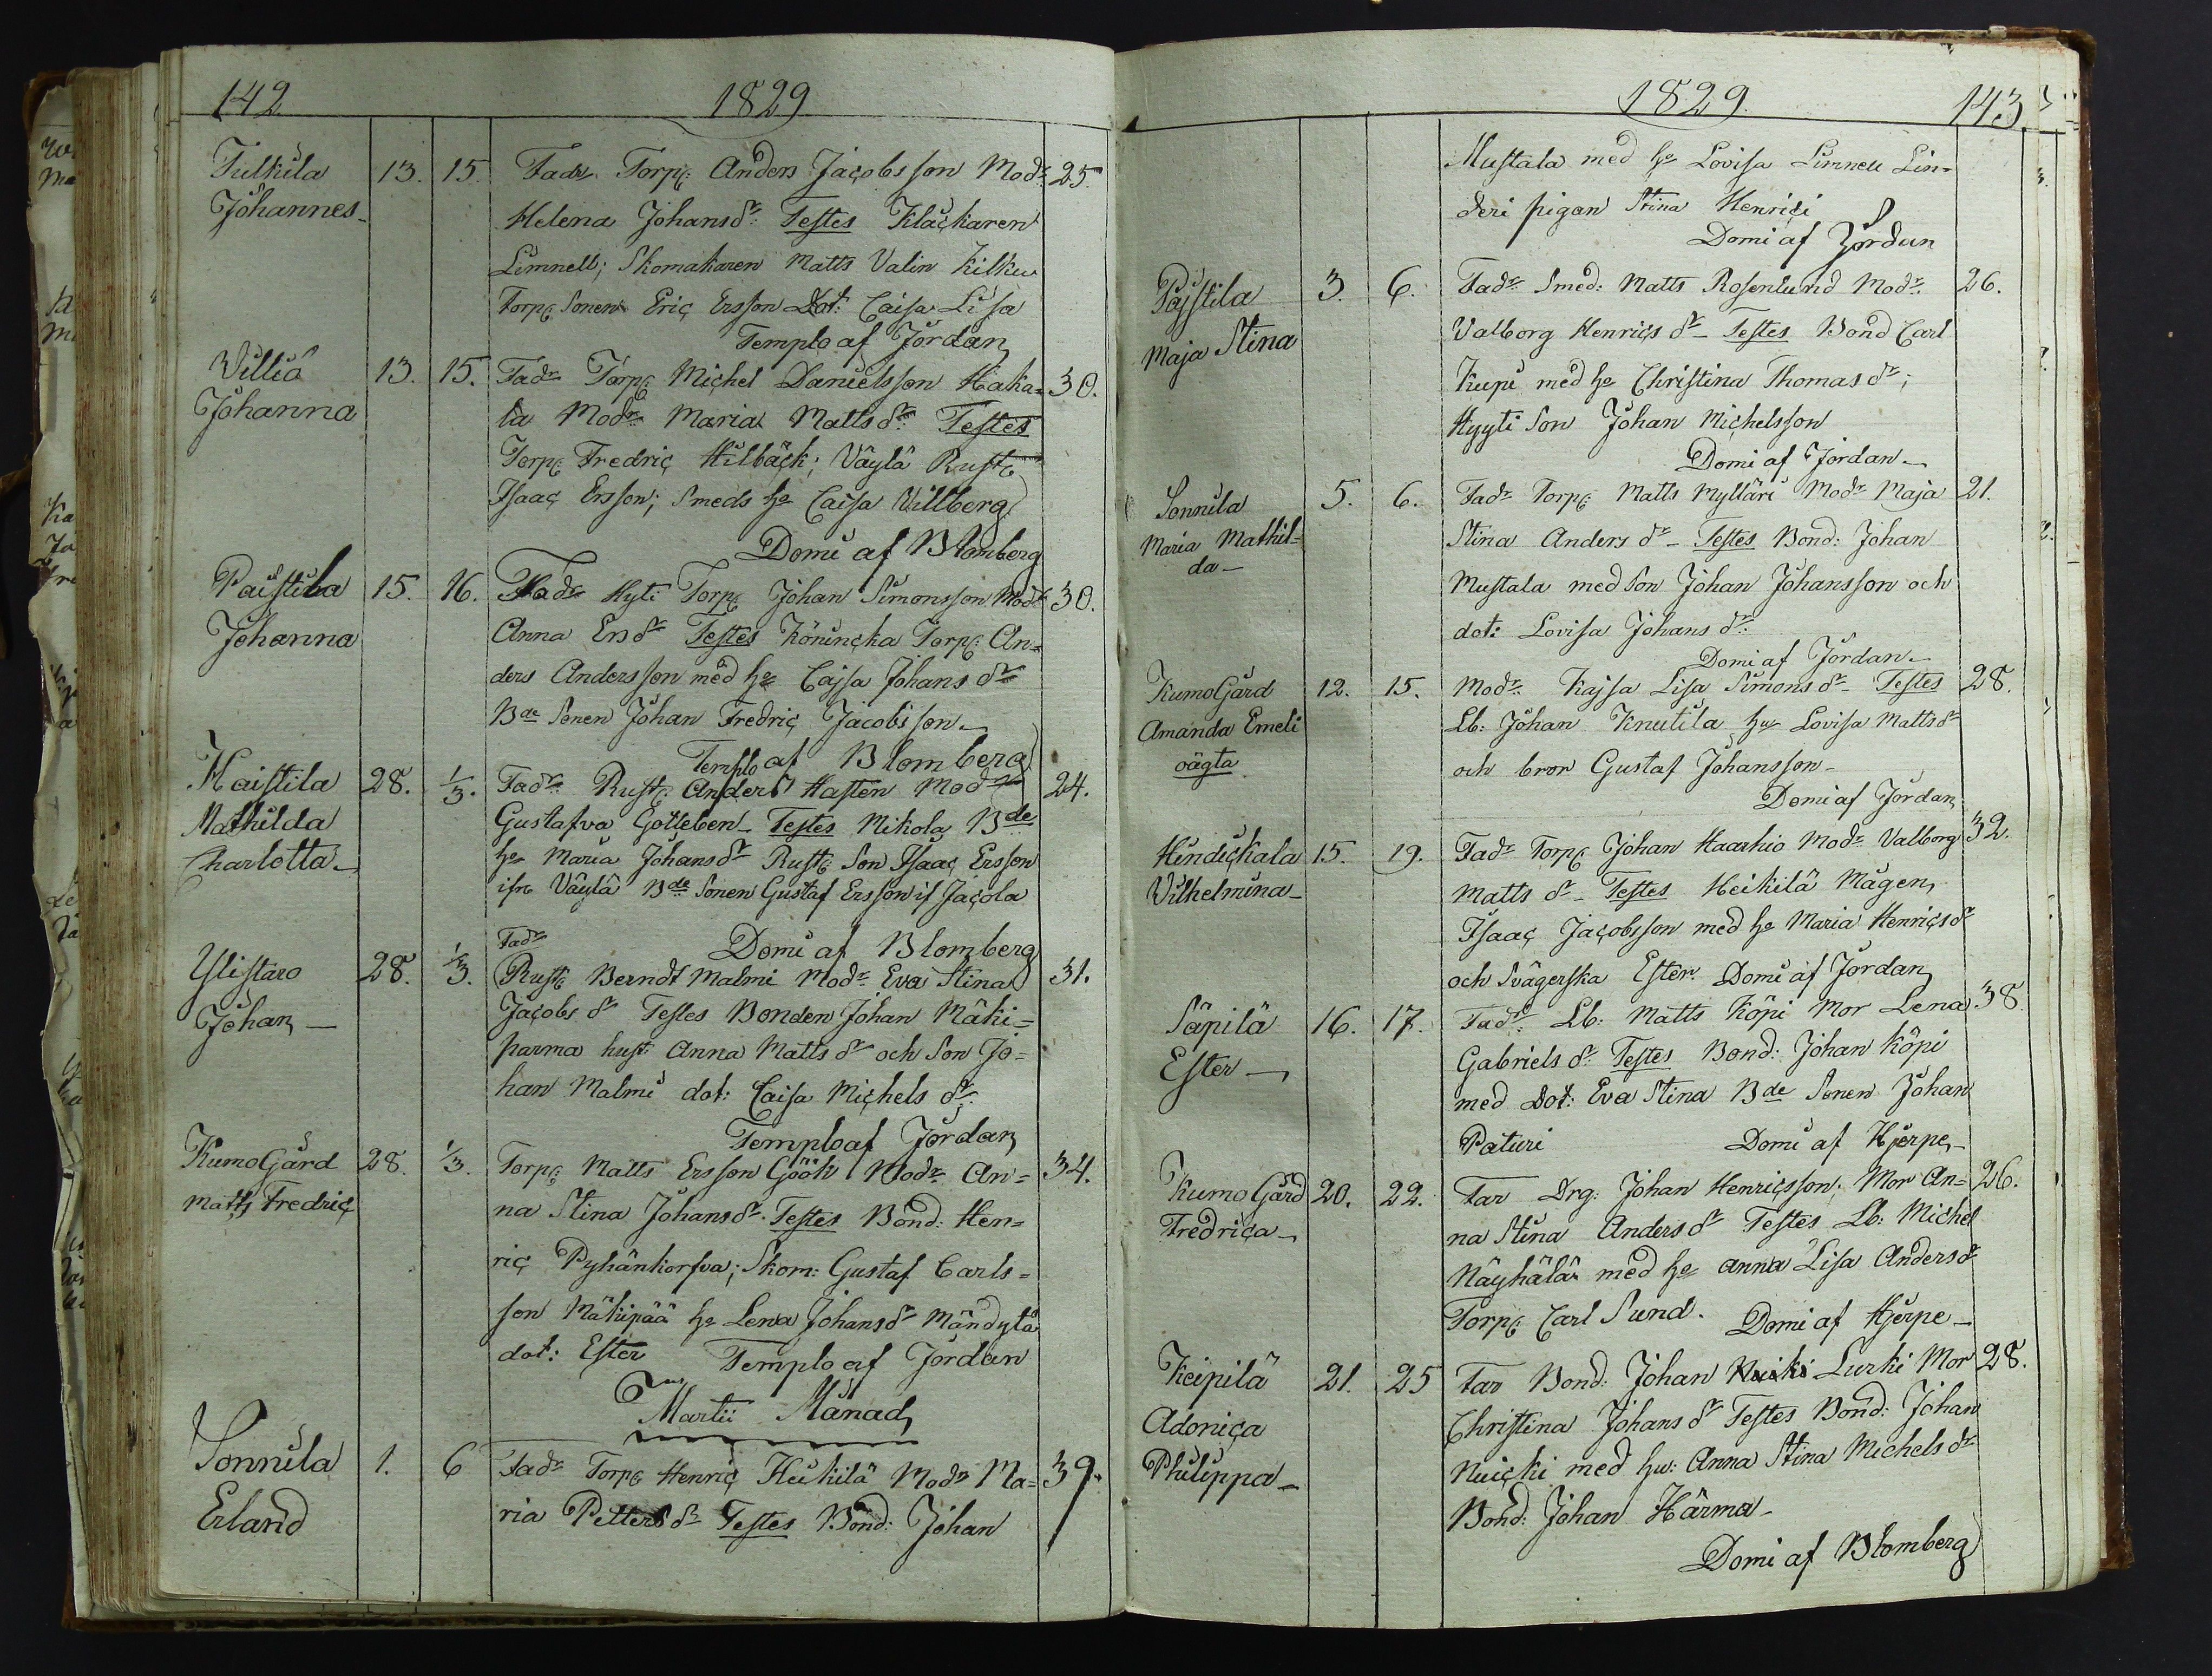 142 1829
Tulkila 13. 15. Fadr Torp. Anders Jacobsson Modr 25.
Johannes Helena Johansdr Testes Klåckaren
Limnell; Skomakaren Matts Valin Kilku
Torp. Sonen Eric Ersson Dot: Caisa Lisa
Templo af Jordan
Villiö 13. 15. Fadr Torp. Michel Danielsson Haka= 30.
Johanna la Modr Maria Mattsdr Testes
Torp. Fredric Hilbäck; Väylä Rust.
Isaac Ersson; Smeds he Caisa Villberg
Domi af Blomberg
Paistila 15. 16. Fadr Hyti Torp Johan Simonsson Modr 30.
Johanna Anna Ersdr Testes Könincka Torp. An=
ders Andersson med he Cajsa Johansdr
Bde Sonen Johan Fredric Jacobsson
Templo af Blomberg
Haistila 28. 1/3. Fadr Rust. Anders Hasten Modr 24.
Mathilda Gustafva Gotleben Testes Mikola Bde
Charlotta he Maria Johansdr Rust. Son Isaac Ersson
ifrn Väylä Bde Sonen Gustaf Ersson if Jacola
Fadr Domi af Blomberg
Ylistaro 28. 1/3. Rust. Berndt Malmi Modr Eva Stina 31.
Johan Jacobsdr Testes Bonden Johan Mäki=
parma hust. Anna Mattsdr och Son Jo=
han Malmi dot: Caisa Michelsdr
Templo af Jordan
KumoGård 28. 1/3. Torp. Matts Ersson Göök Modr An= 34.
Matts Fredric na Stina Johansdr Testes Bond: Hen=
ric Pyhänkorfva; Skom: Gustaf Carls=
son Mäkipää he Lena Johansdr Mändylä
dot: Ester Templo af Jordan
Martii Månad
Sonnila 1. 6 Fadr Torp. Henric Heikilä Modr Ma= 39.
Erland ria Pettersdr Testes Bond: Johan
1829. 143
Mustala med he Lovisa Limnell Lin=
deri pigan Stina Henrici
Domi af Jordan
Pajstila 3. 6. Fadr Smed: Matts Rosenlund Modr 26.
Maja Stina Valborg Henricsdr Testes Bond Carl
Kupi med he Christina Thomasdr;
Hyyti Son Johan Michelsson
Domi af Jordan
Sonnila 5. 6. Fadr Torp. Matts Mylläri Modr Maja 21.
Maria Mathil= Stina Andersdr Testes Bond: Johan
da Mustala med Son Johan Johansson och
dot: Lovisa Johansdr
Domi af Jordan
KumoGård 12. 15. Modr Kajsa Lisa Simonsdr Testes 28.
Amanda Emeli Lb: Johan Knutila hu Lovisa Mattsdr
oägta och bror Gustaf Johansson
Domi af Jordan
Hindickala 15. 19. Fadr Torp. Johan Haarhio Modr Valborg 32.
Vilhelmina Mattsdr Testes Heikilä Mågen
Isaac Jacobsson med he Maria Henricsdr
och Svägerska Ester Domi af Jordan
Säpilä 16. 17. Fadr Lb. Matts Köpi Mor Lena 38.
Ester Gabrielsdr Testes Bond: Johan Köpi
med Dot: Eva Stina Bde Sonen Johan
Paturi Domi af Hjerpe
KumoGård 20. 22. Far Drg: Johan Henricsson. Mor An= 26.
Fredrica na Stina Andersdr Testes Lb: Michel
Näyhälä med he Anna Lisa Andersdr
Torp. Carl Sund. Domi af Hjerpe
Keipilä 21. 25 Far Bond: Johan Lurki Mor 28.
Adonica Christina Johansdr Testes Bond: Johan
Philippa Nuicki med hu: Anna Stina Michelsdr
Bond: Johan Härma
Domi af Blomberg